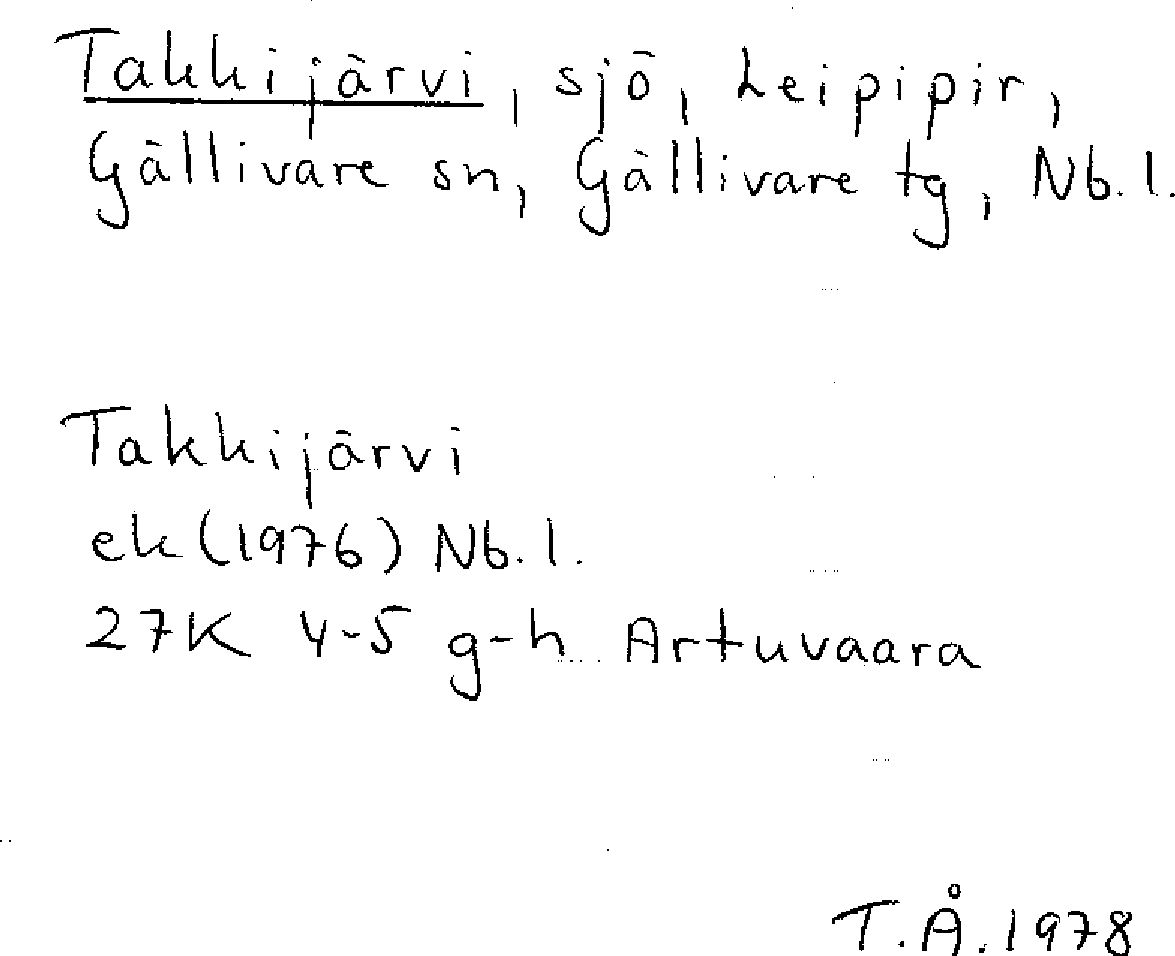 Takkijärvi, sjö, Leipipir,
Gällivare sn, Gällivare tg, Nb. l.
Takkijärvi
ek (1976) Nb. l.
27K 4-5 g-h Artuvaara
T.Å. 1978